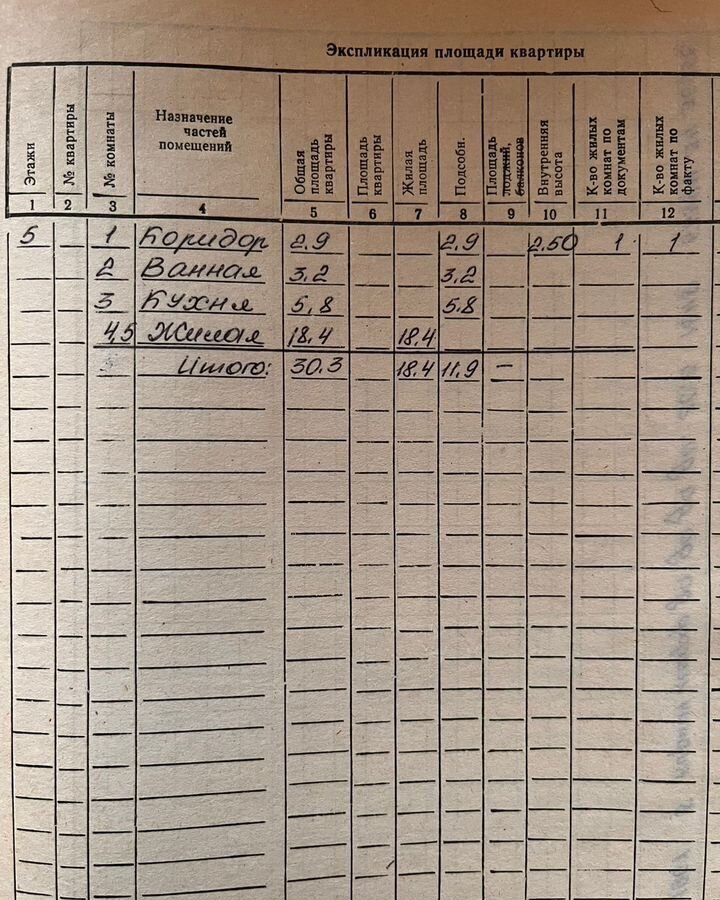 Экспликация площади квартиры
Этажи
№ квартиры
№ комнаты
Назначение
частей
помещений
Общая
площадь
квартиры
Площадь
квартиры
Жилая
площадь
Подсобн.
Площадь
лоджий,
балконов
Внутренняя
высота
К-во жилых
комнат по
документам
К-во жилых
комнат по
факту
1 2 3 4 5 6 7 8 9 10 11 12
5 1 Коридор 2.9 2.9 2.50 1 1
2 Ванная 3,2 3,2
3 Кухня 5,8 5.8
4,5 Жилая 18.4 18.4
Итого: 30.3 18.4 11.9 –